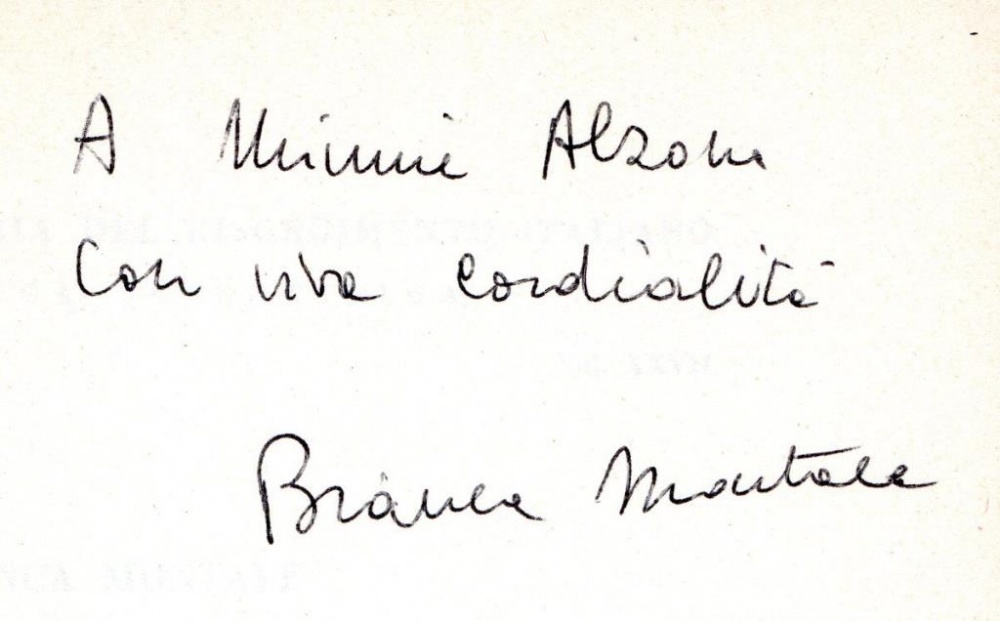 A Minnie Alzona
con viva cordialità
Bianca Montale